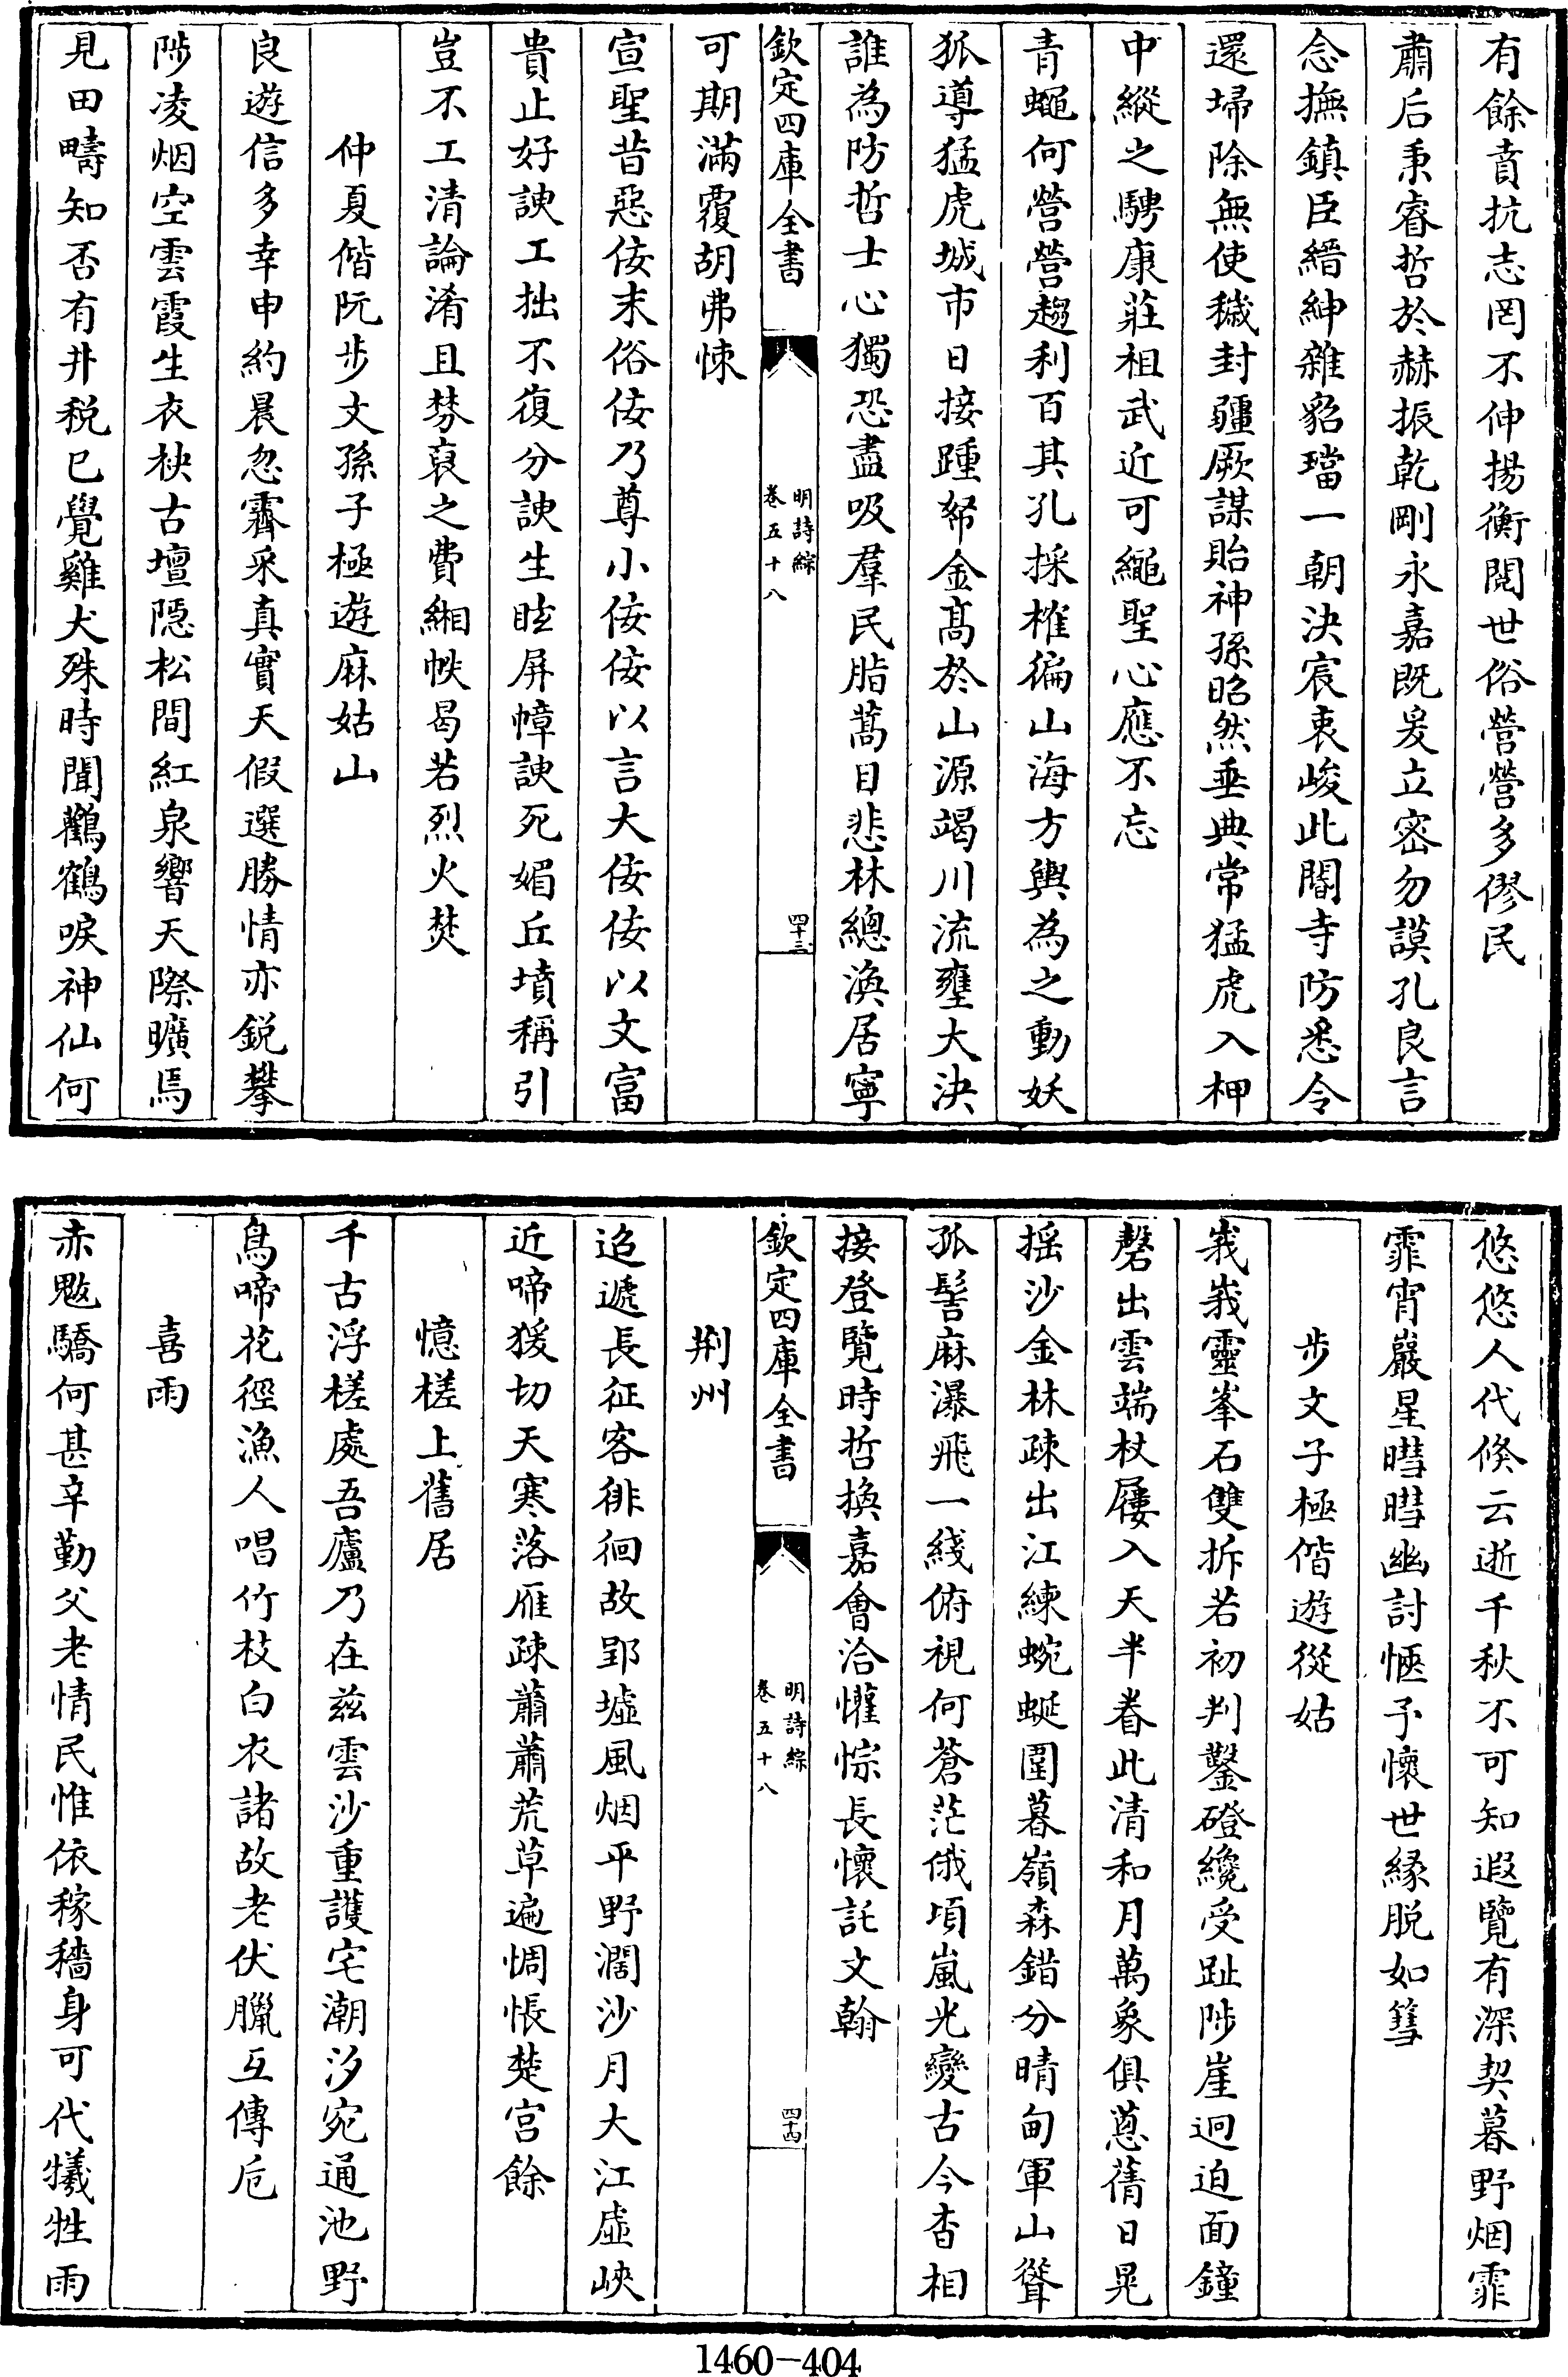 有餘賁抗志罔不伸揚衡閱世俗營營多僇民
肅后秉睿哲於赫振乾剛永嘉既爰立密勿謨孔良言
念撫鎮臣縉紳雜貂璫一朝決宸衷峻此閽寺防悉令
還埽除無使穢封疆厥謀貽神孫昭然垂典常猛虎入柙
中縱之騁康莊祖武近可繩聖心應不忘
青蠅何營營趨利百其孔採榷徧山海方輿為之動妖
狐導猛虎城市日接踵帑金高於山源竭川流壅大決
誰為防哲士心獨恐盡吸羣民脂蒿目悲林總渙居寧
欽定四庫全書
明詩綜
卷五十八
四十三
可期滿覆胡弗悚
宣聖昔惡佞末俗佞乃尊小佞佞以言大佞佞以文富
貴止好諛工拙不復分諛生眩屏幛諛死媚丘墳稱引
豈不工清論淆且棼哀之費緗帙曷若烈火焚
仲夏偕阮步文孫子極遊麻姑山
良遊信多幸申約晨忽霽采真實天假選勝情亦銳攀
陟凌烟空雲霞生衣袂古壇隱松間紅泉響天際曠焉
見田疇知否有井稅已覺雞犬殊時聞鸛鶴唳神仙何
悠悠人代倏云逝千秋不可知遐覽有深契暮野烟霏
霏宵巖星暳暳幽討愜予懷世緣脫如篲
步文子極偕遊從姑
峩峩靈峯石雙拆若初判鑿磴纔受趾陟崖迥迫面鐘
磬出雲端杖屨入天半眷此清和月萬象俱蔥蒨日晃
搖沙金林疎出江練蜿蜒圍暮嶺森錯分晴甸軍山聳
孤髻麻瀑飛一綫俯視何蒼茫俄頃嵐光變古今杳相
接登覽時哲換嘉會洽懽悰長懷託文翰
欽定四庫全書
明詩綜
卷五十八
四十四
荆州
迢遞長征客徘徊故郢墟風烟平野濶沙月大江虛峽
近啼猨切天寒落雁疎蕭蕭荒草遍惆悵楚宮餘
憶槎上舊居
千古浮槎處吾廬乃在兹雲沙重護宅潮汐宛通池野
鳥啼花徑漁人唱竹枝白衣諸故老伏臘互傳卮
喜雨
赤魃驕何甚辛勤父老情民惟依稼穡身可代犧牲雨
1460-404